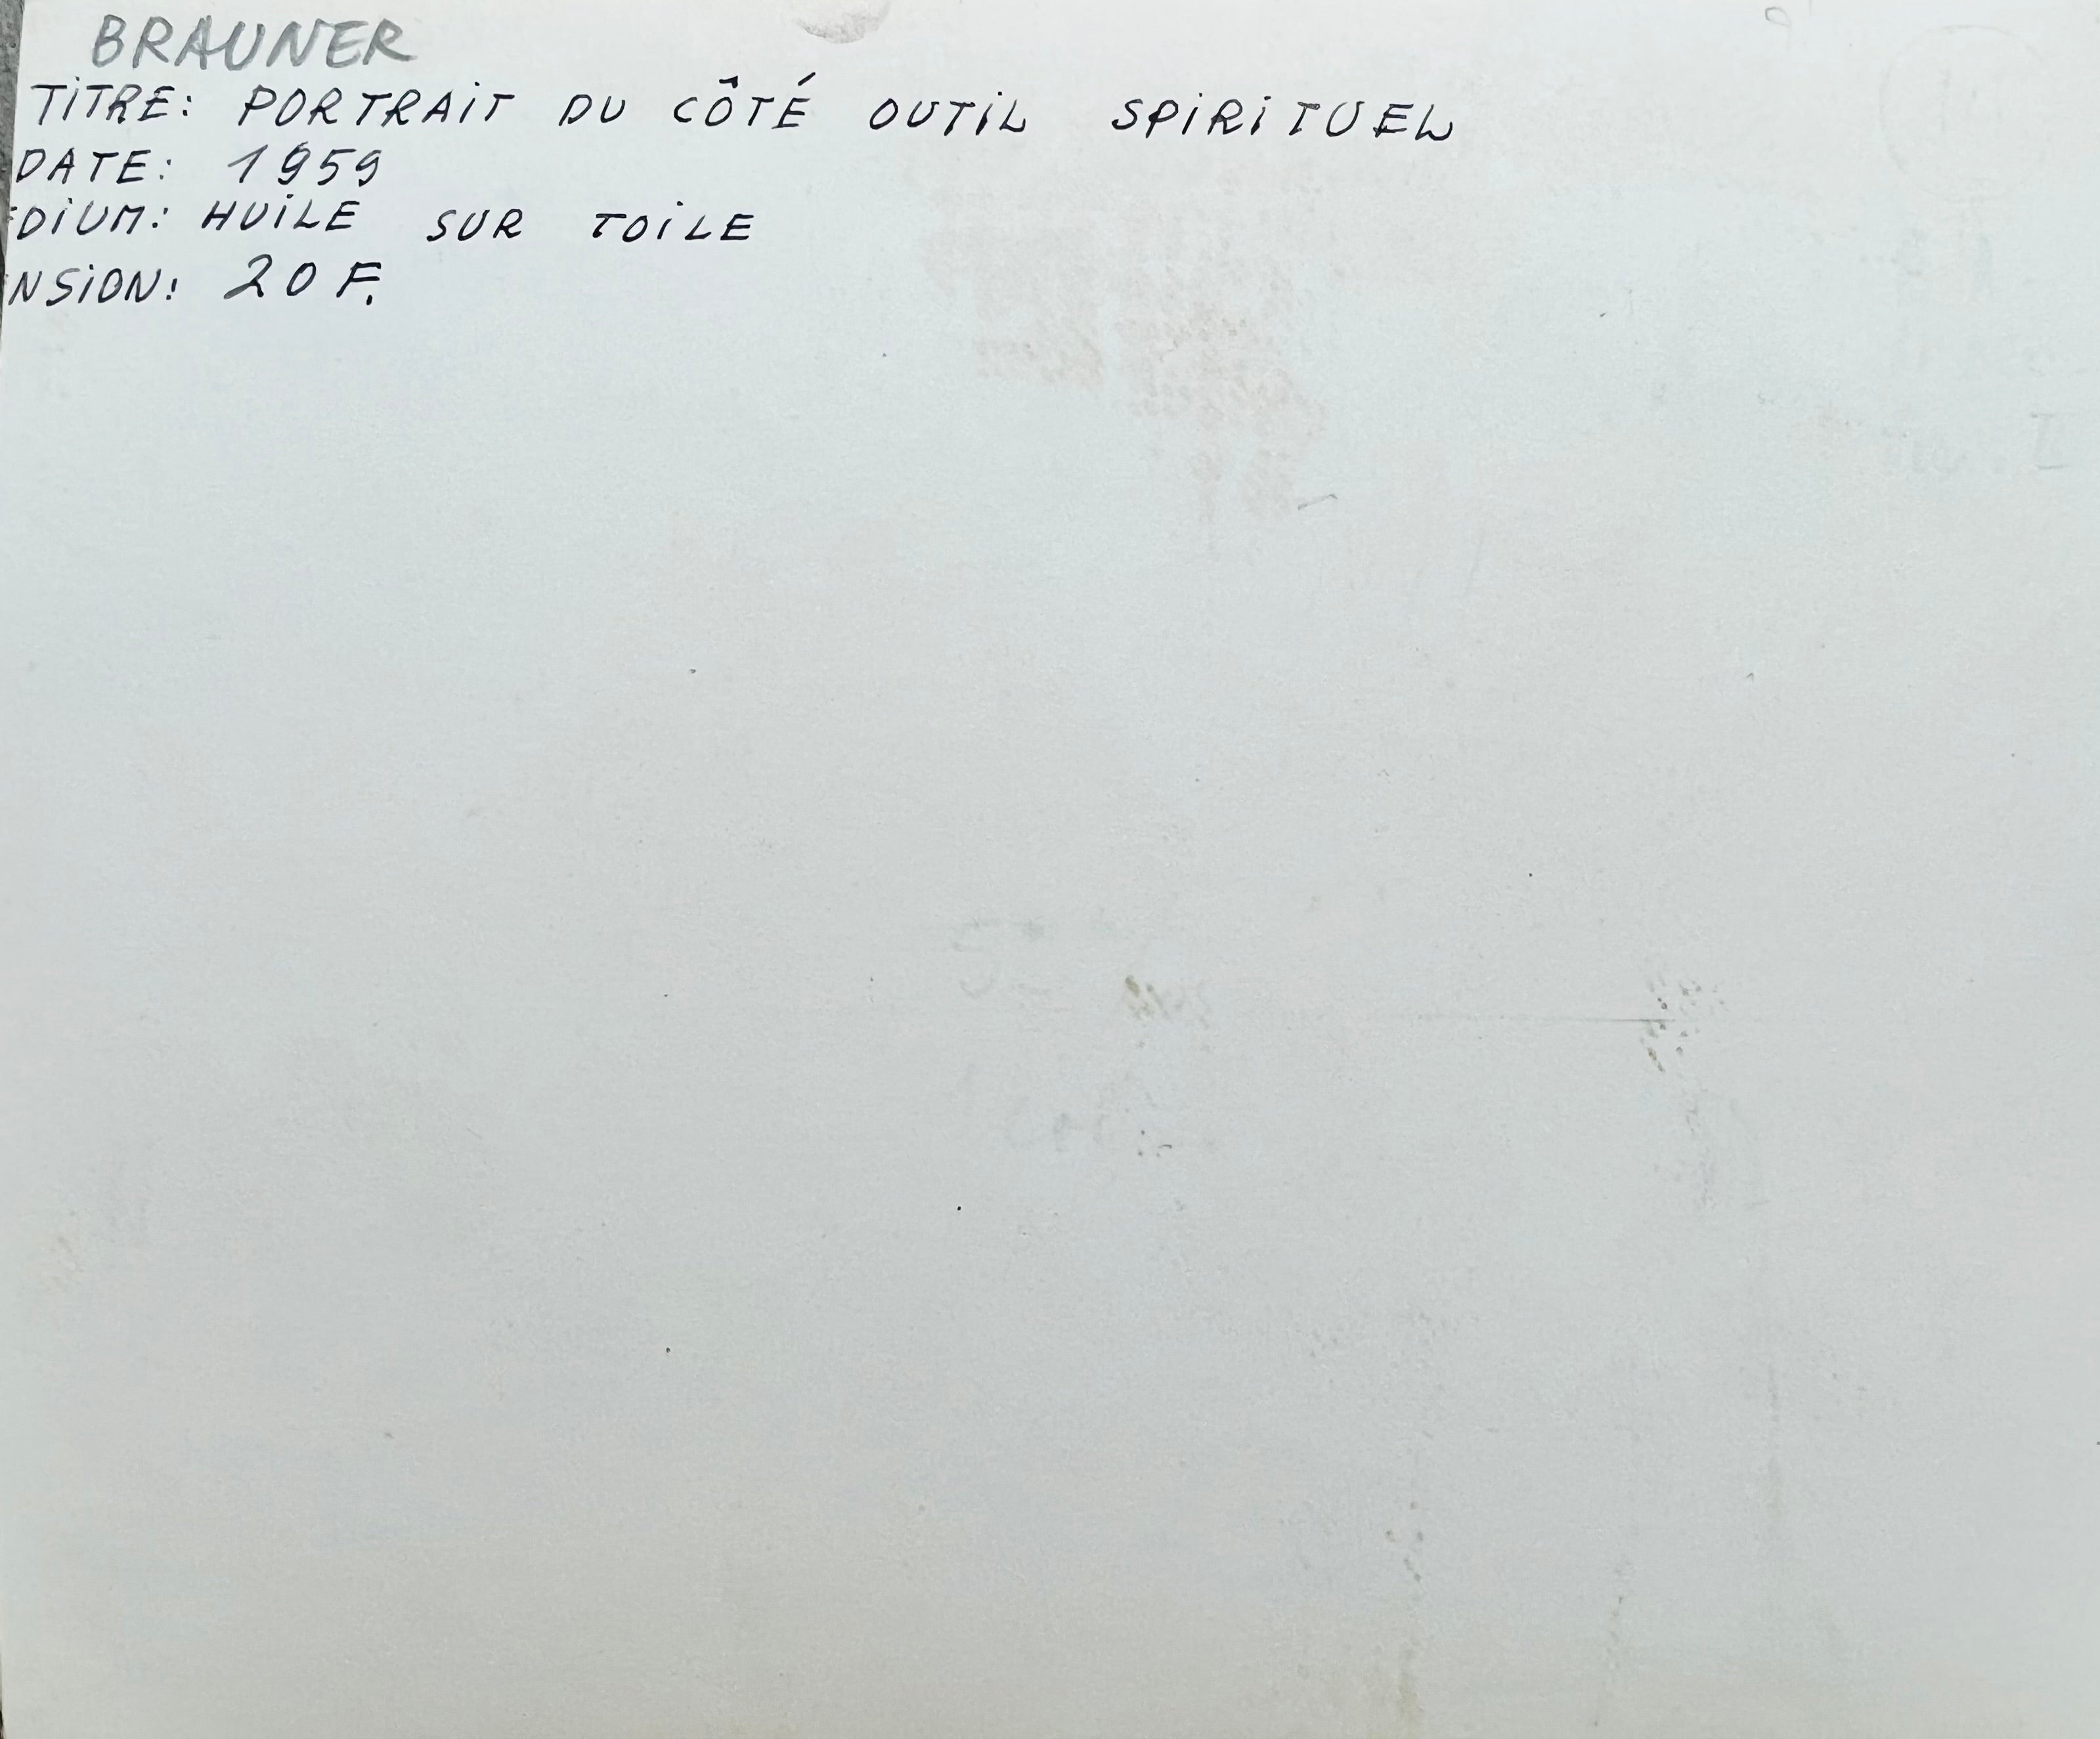 BRAUNER
TITRE: PORTRAIT DU CÔTÉ OUTIL SPIRITUEL
DATE: 1959
EDIUM: HUILE SUR TOILE
NSION: 20 F.